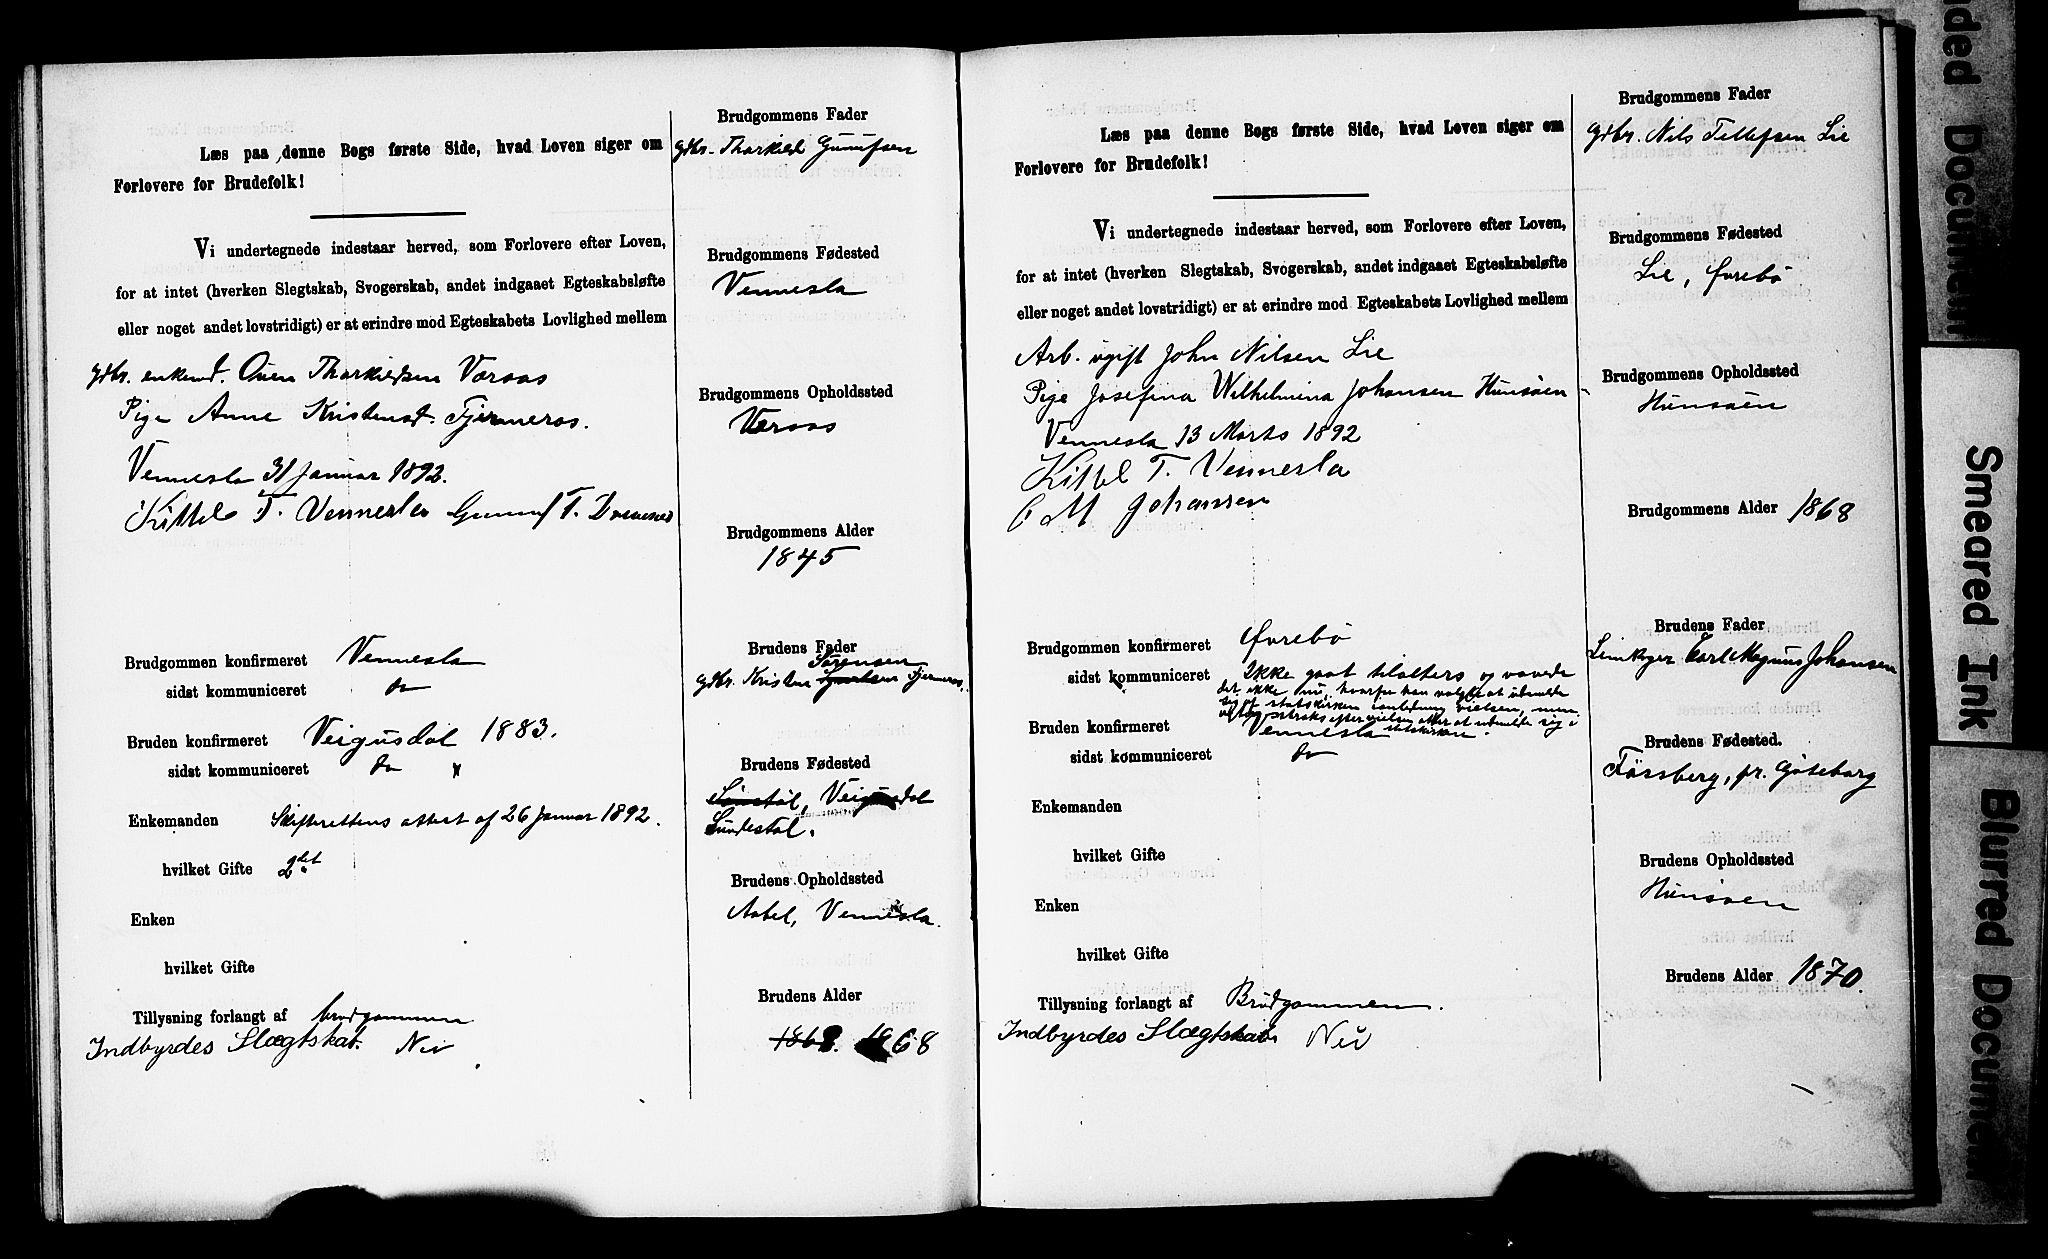 Læs paa denne Bogs første Side, hvad Loven siger om
Forlovere for Brudefolk!
Vi undertegnede indestaar herved, som Forlovere efter Loven,
for at intet (hverken Slegtskab, Svogerskab, andet indgaaet Egteskabsløfte
eller noget andet lovstridigt) er at erindre mod Egteskabets Lovlighed mellem
gdbr. enkemd. Oven Tharkildsen Væraas
Pige Anne Kristensd. Fjermeros.
Vennesla 31 Januar 1892.
Kittel T. Vennesla Gunnuf T.
Brudgommen konfirmeret Vennesla
sidst kommuniceret do
Bruden konfirmeret Veigusdal 1883.
sidst kommuniceret do "
Enkemanden Skifterettens attest af 26 Januar 1892.
hvilket Gifte 2det
Enken
hvilket Gifte
Tillysning forlangt af brudgommen
Indbyrdes Slægtskab. Nei
Brudgommens Fader
gdbr. Tharkild Gunufsen
Brudgommens Fødested
Vennesla
Brudgommens Opholdssted
Væraas
Brudgommens Alder
1845
Brudens Fader
Sørensen
gdbr. Kristen Fjermeros.
Brudens Fødested
Veigusdal
Sundestøl.
Brudens Opholdssted
Aabel, Vennesla.
Brudens Alder
1868
Læs paa denne Bogs første Side, hvad Loven siger om
Forlovere for Brudefolk!
Vi undertegnede indestaar herved, som Forlovere efter Loven,
for at intet (hverken Slegtskab, Svogerskab, andet indgaaet Egteskabsløfte
eller noget andet lovstridigt) er at erindre mod Egteskabets Lovlighed mellem
Arb. ugift John Nilsen Lie
Pige Josefina Wilhelmina Johansen Hunsøen
Vennesla 13 Marts 1892
Kittel T. Vennesla
C M Johansen
Brudgommen konfirmeret Øvrebø
sidst kommuniceret Ikke gaat tilalters og vovede
det ikke nu, hvorfor han valgte at udmelde
sig af statskirken vielsen, men
straks efter vielsen atter at indmelde sig i
statskirken.
Bruden konfirmeret Vennesla
sidst kommuniceret do
Enkemanden
hvilket Gifte
Enken
hvilket Gifte
Tillysning forlangt af Brudgommen.
Indbyrdes Slægtskab. Nei
Brudgommens Fader
gdbr. Nils Tellefsen Lie
Brudgommens Fødested
Lie, Øvrebø
Brudgommens Opholdssted
Hunsøen
Brudgommens Alder 1868
Brudens Fader
Carl Magnus Johansen
Brudens Fødested.
Fässberg, pr. Göteborg
Brudens Opholdssted
Hunsøen
Brudens Alder 1870.
ded Document
Smeared Ink
Blurred Document